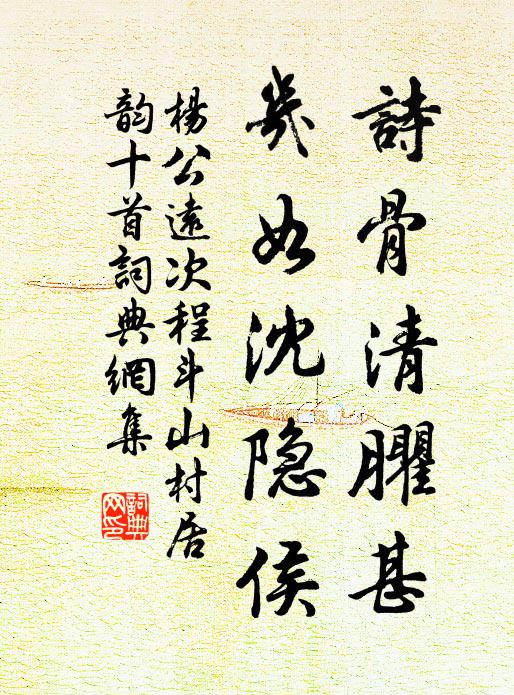 詩骨清臞甚
幾如沈隐侯
楊公遠次程斗山村居
韵十首詞典網集
詞典网印